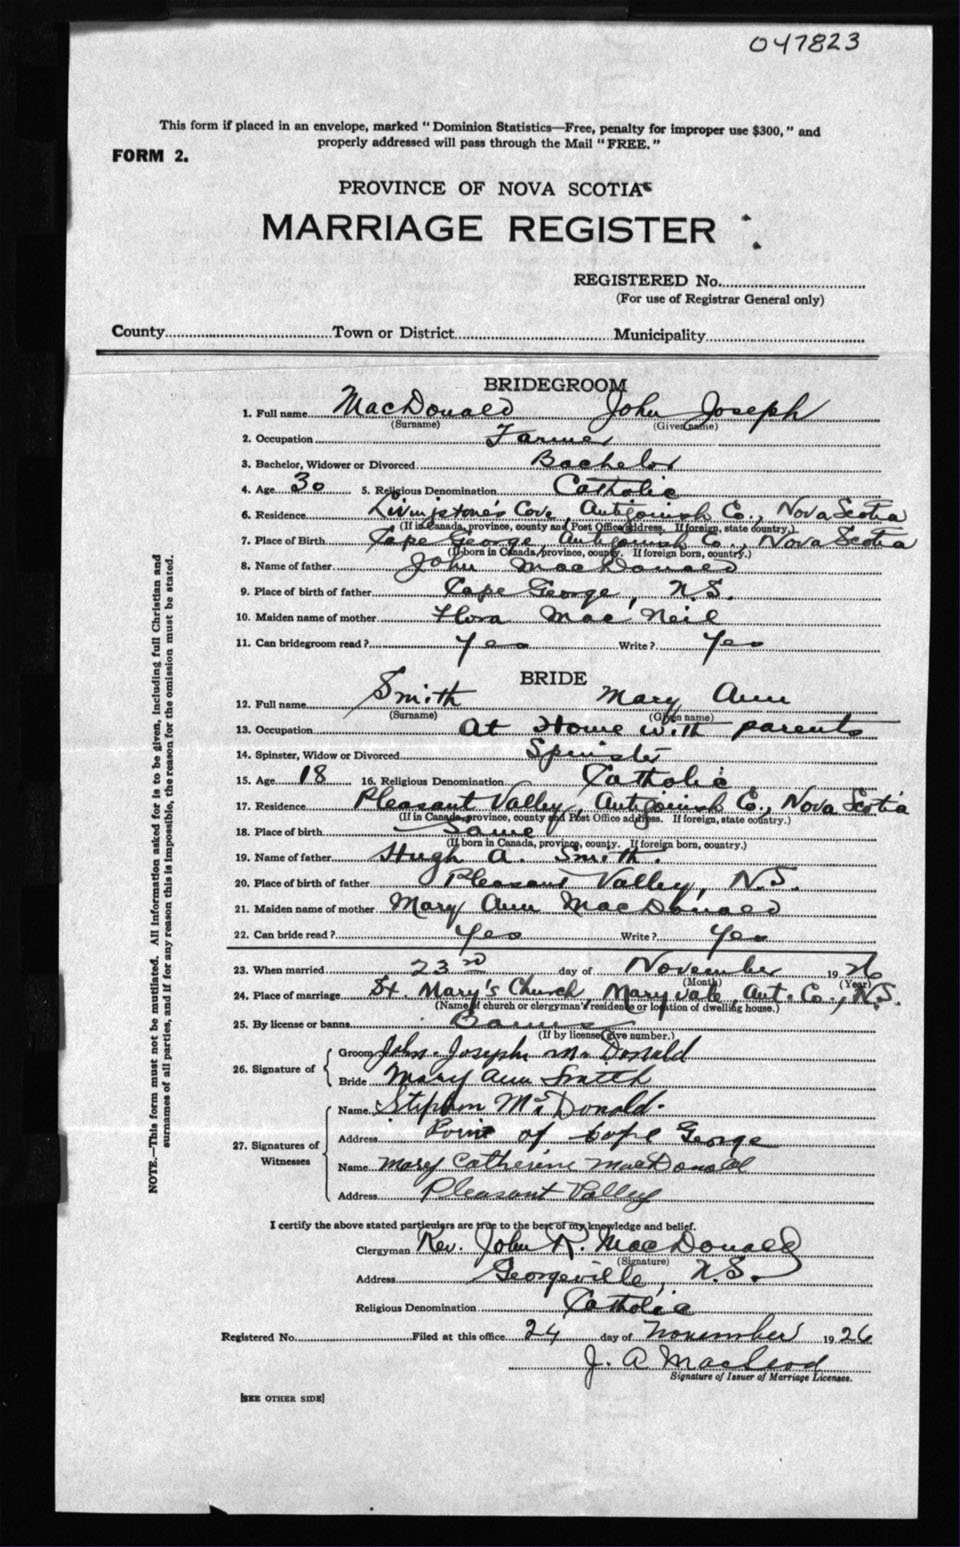 047823
This form if placed in an envelope, marked "Dominion Statistics—Free, penalty for improper use $300," and
properly addressed will pass through the Mail "FREE."
FORM 2.
PROVINCE OF NOVA SCOTIA
MARRIAGE REGISTER
REGISTERED No.
(For use of Registrar General only)
County Town or District Municipality
BRIDEGROOM
1. Full name MacDonald John Joseph
(Surname) (Given name)
2. Occupation Farmer
3. Bachelor, Widower or Divorced Bachelor
4. Age 30 5. Religious Denomination Catholic
6. Residence Livingstone's Cove, Antigonish Co., Nova Scotia
(If in Canada, province, county and Post Office address. If foreign, state country.)
7. Place of Birth Cape George, Antigonish Co., Nova Scotia
(If born in Canada, province, county. If foreign born, country.)
8. Name of father John MacDonald
9. Place of birth of father Cape George, N.S.
10. Maiden name of mother Flora MacNeil
11. Can bridegroom read? Yes Write? Yes
BRIDE
12. Full name Smith Mary Ann
(Surname) (Given name)
13. Occupation At Home with parents
14. Spinster, Widow or Divorced Spinster
15. Age 18 16. Religious Denomination Catholic
17. Residence Pleasant Valley, Antigonish Co., Nova Scotia
(If in Canada, province, county and Post Office address. If foreign, state country.)
18. Place of birth Same
(If born in Canada, province, county. If foreign born, country.)
19. Name of father Hugh A. Smith.
20. Place of birth of father Pleasant Valley, N.S.
21. Maiden name of mother Mary Ann MacDonald
22. Can bride read? Yes Write? Yes
23. When married 23rd day of November 1926
(Month) (Year)
24. Place of marriage St. Mary's Church, Maryvale, Ant. Co., N.S.
(Name of church or clergyman's residence or location of dwelling house.)
25. By license or banns Banns
(If by license give number.)
26. Signature of
Groom John Joseph McDonald
Bride Mary Ann Smith
27. Signatures of Witnesses
Name Stephen McDonald.
Address Point of Cape George
Name Mary Catherine MacDonald
Address Pleasant Valley
I certify the above stated particulars are true to the best of my knowledge and belief.
Clergyman Rev. John R. MacDonald
(Signature)
Address Georgeville, N.S.
Religious Denomination Catholic
Registered No. Filed at this office 24 day of November 1926
J. A MacLeod
Signature of Issuer of Marriage Licenses.
[SEE OTHER SIDE]
NOTE.—This form must not be mutilated. All information asked for is to be given, including full Christian and
surnames of all parties, and if for any reason this is impossible, the reason for the omission must be stated.